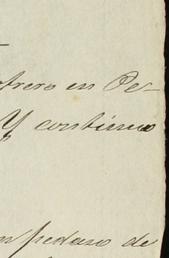 otrero en Pe-
Y contiene
un pedazo de